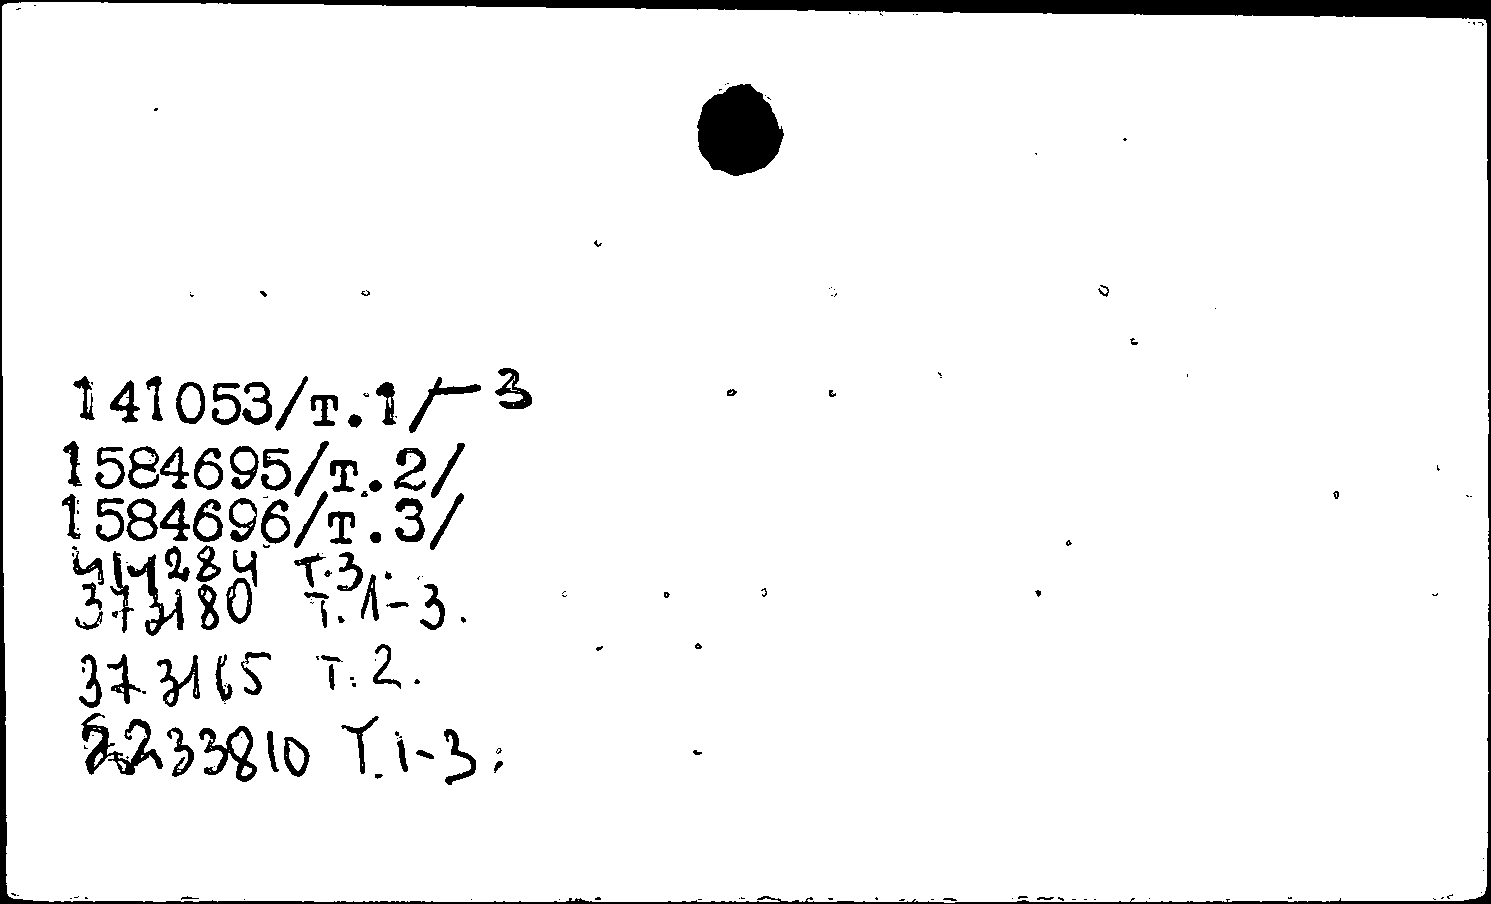 141053/т.1/-3
1584695/т.2/
1584696/т.3/
414284 т.3.
373180 т.1-3.
373165 т.2.
2233810 Т.1-3.